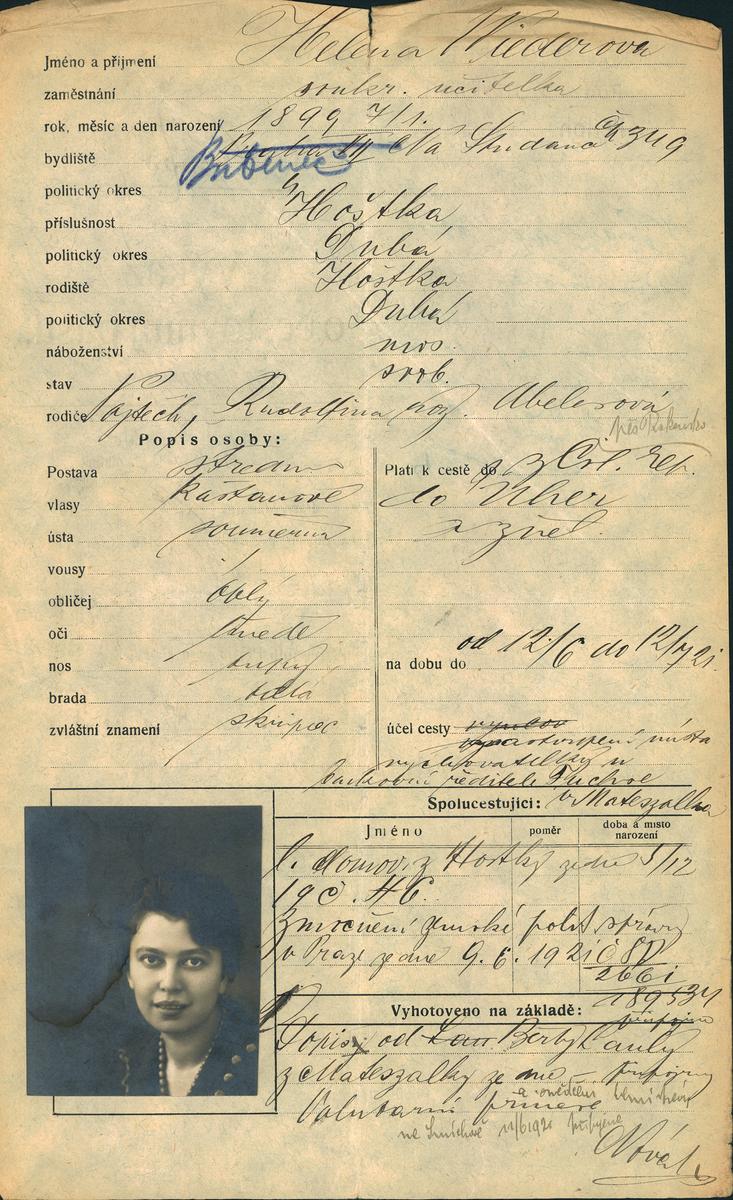 Jméno a příjmení Helena Wiederova
zaměstnání soukr. učitelka
rok, měsíc a den narození 1899 7/1.
bydliště Praha VII Na Studánce čp 349
Bubeneč
politický okres
příslušnost Hoštka
politický okres Dubá
rodiště Hoštka
politický okres Dubá
náboženství mos.
stav svob.
rodiče Vojtěch, Rudolfina roz. Abelesová
Popis osoby:
Postava střední
vlasy kaštanové
ústa souměrná
vousy /
obličej oblý
oči hnědé
nos tupý
brada oblá
zvláštní znamení skřipec
Platí k cestě do z Čsl. rep.
do Uher
a zpět.
na dobu do od 12/6 do 12/7 21.
účel cesty nastoupení místa
vychovatelky u
bankovní ředitele Fuchse
v Mateszalka
Spolucestující:
Jméno poměr doba a místo narození
l. domov. z Hostky ze dne 5/12
19 č. 46.
Zmocnění zemské polit. správy
v Praze ze dne 9. 6. 1921 č 8D
Vyhotoveno na základě:
Dopis od Berty Pauly
z Mateszalky ze dne – připojeny
na Smíchově 11/6 1921
Novák